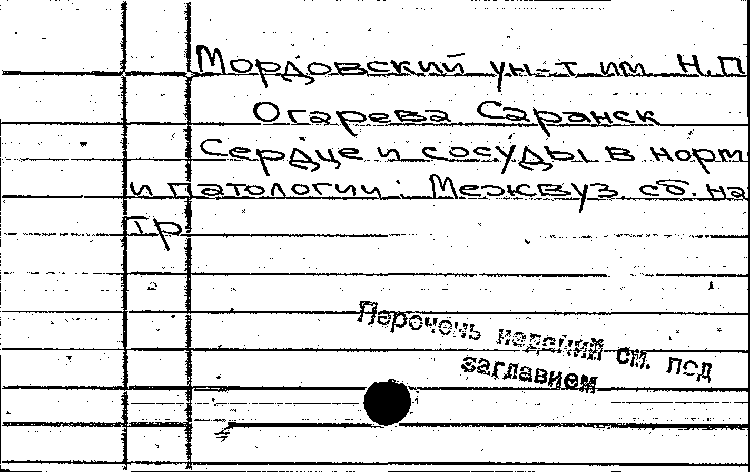 Мордовский ун-т им Н.П
Огарева Саранск
Сердце и сосуды в норм
и патологии: Межвуз сб. на
тр
Перечень изданий см. под
заглавием